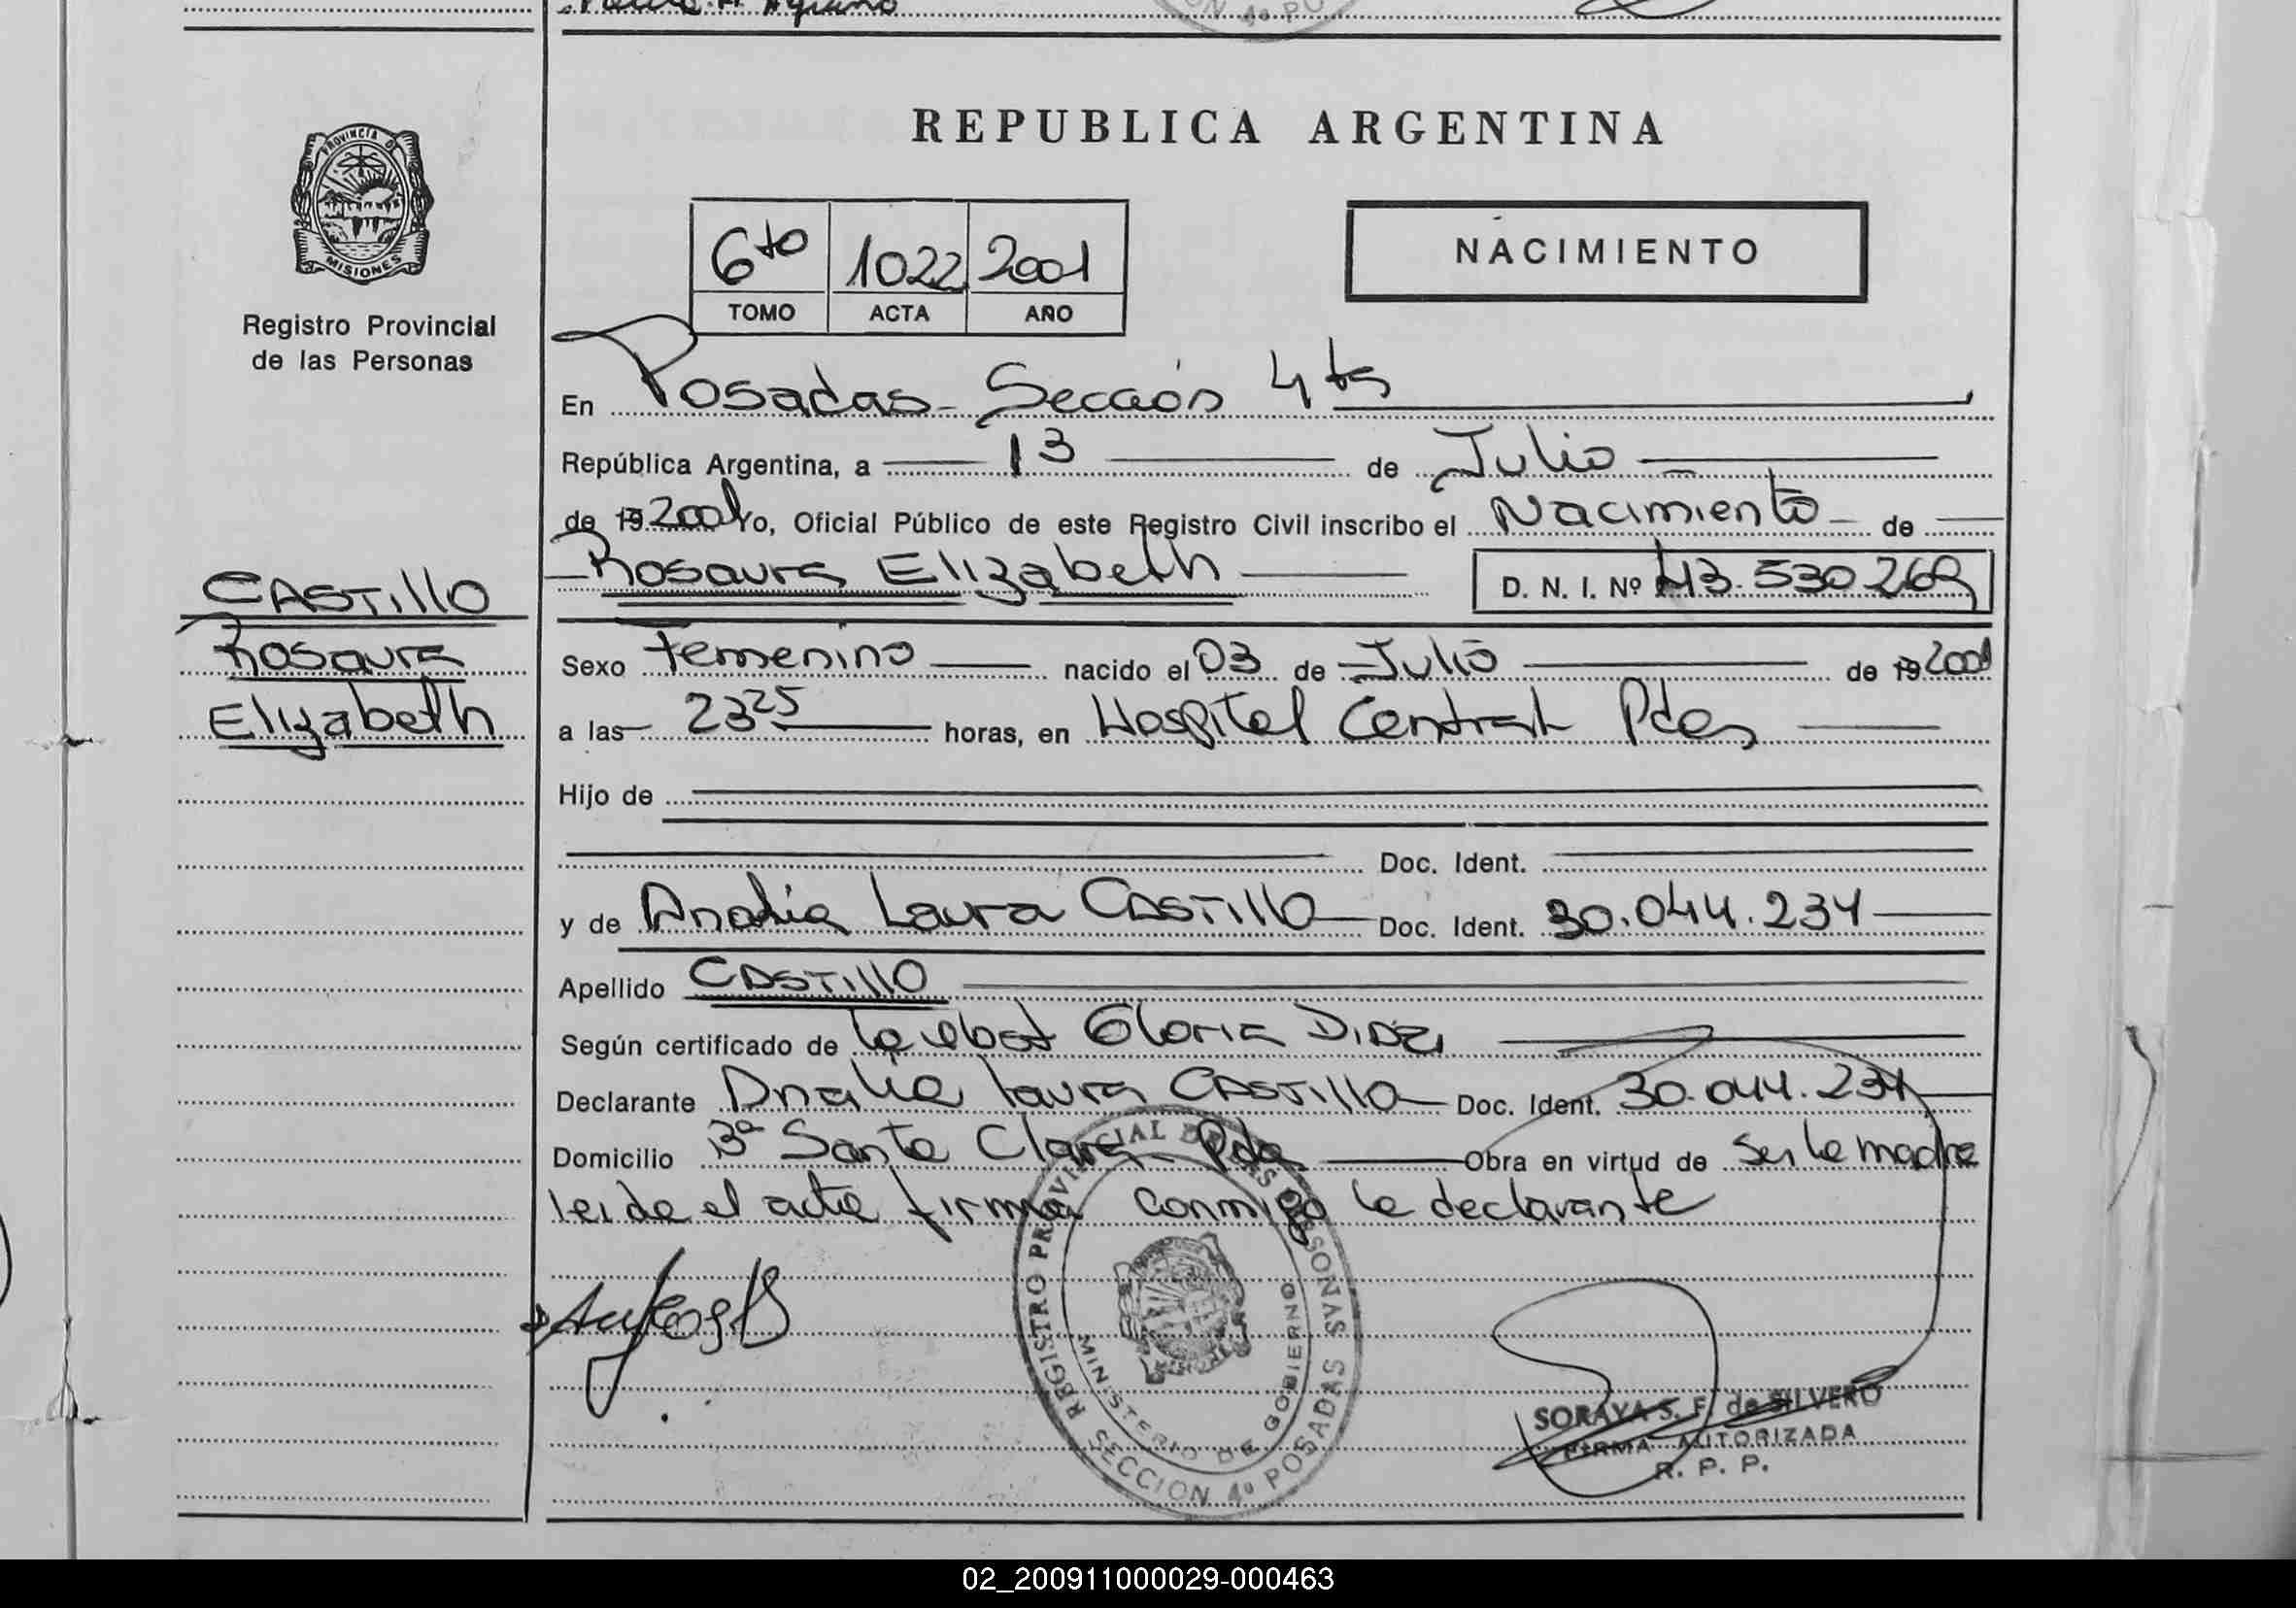 PROVINCIA D
MISIONES
Registro Provincial
de las Personas
CASTILLO
Rosaura
Elizabeth
REPUBLICA ARGENTINA
6to 1022 2001
TOMO ACTA AÑO
NACIMIENTO
En Posadas - Sección 4ta
República Argentina, a 13 de Julio
de 19 2001 Yo, Oficial Público de este Registro Civil inscribo el Nacimiento de
Rosaura Elizabeth D. N. I. Nº 43.530.269
Sexo Femenino nacido el 03 de Julio de 19 2001
a las 23 25 horas, en Hospital Central Pdas
Hijo de
Doc. Ident.
y de Analia Laura CASTILLO Doc. Ident. 30.044.234
Apellido CASTILLO
Según certificado de Gloria Diaz
Declarante Analia Laura CASTILLO Doc. Ident. 30.044.234
Domicilio Santa Clara - Pdas Obra en virtud de ser la madre
leida el acta firma conmigo la declarante
REGISTRO PROVINCIAL DE LAS PERSONAS
MINISTERIO DE GOBIERNO
SECCION 4º POSADAS
SORAYA S. F. de SILVERO
FIRMA AUTORIZADA
R. P. P.
02_200911000029-000463